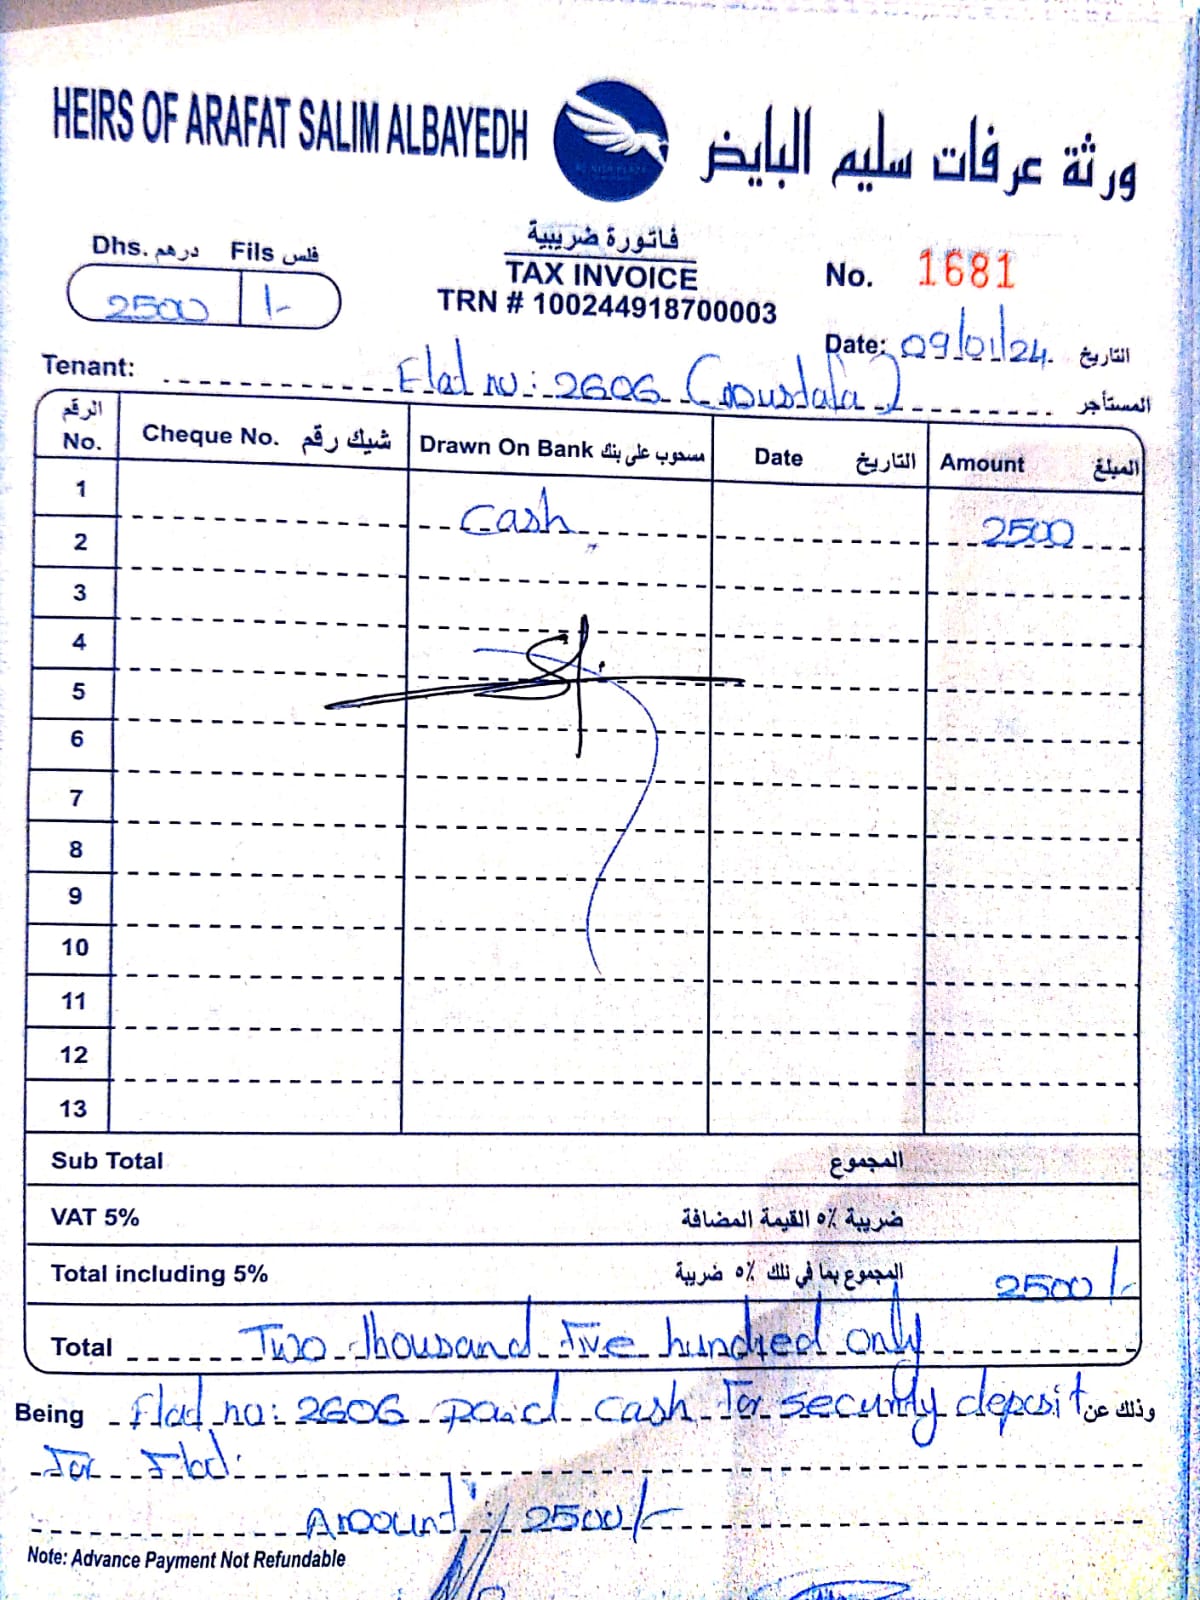 HEIRS OF ARAFAT SALIM ALBAYEDH
ورثة عرفات سليم البايض
Dhs. درهم Fils فلس
2500 /-
فاتورة ضريبية
TAX INVOICE
TRN # 100244918700003
No. 1681
Date: 09/01/24. التاريخ
Tenant: Flad no: 2606 (Moustafa) المستأجر
الرقم No. Cheque No. شيك رقم Drawn On Bank مسحوب على بنك Date التاريخ Amount المبلغ
1
2 Cash 2500
3
4
5
6
7
8
9
10
11
12
13
Sub Total المجموع
VAT 5% ضريبة ٥٪ القيمة المضافة
Total including 5% المجموع بما في ذلك ٥٪ ضريبة 2500/-
Total Two Thousand Five hundred only
Being Flad no: 2606 paid cash For security deposit وذلك عن
For Flad:
Amount: 2500/-
Note: Advance Payment Not Refundable